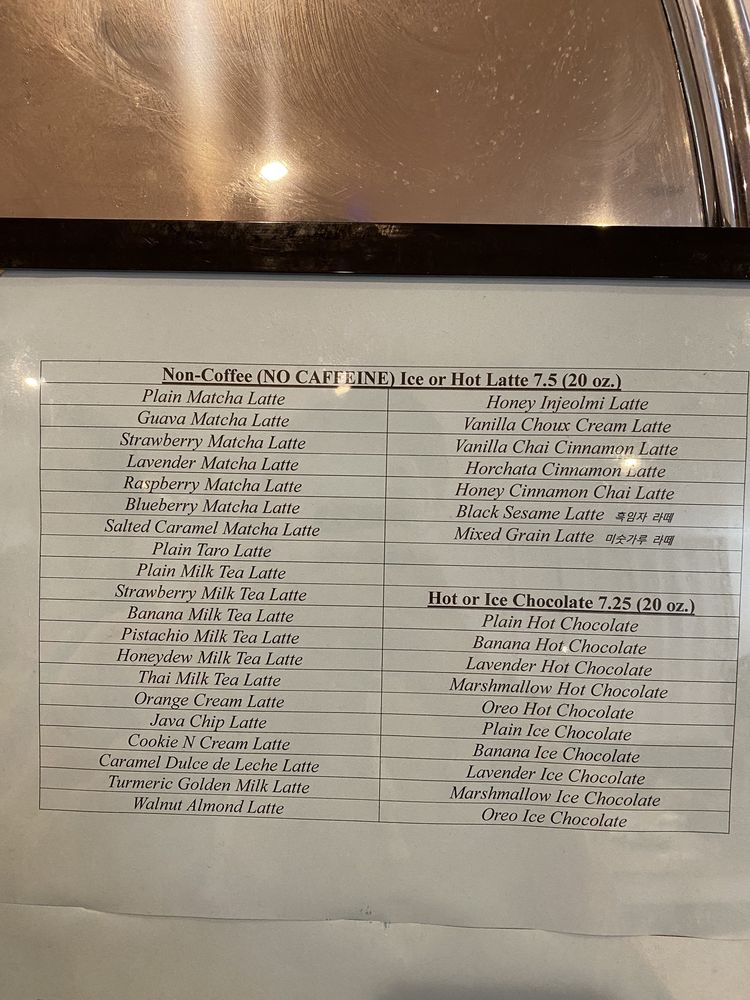 Non-Coffee (NO CAFFEINE) Ice or Hot Latte 7.5 (20 oz.)
Plain Matcha Latte
Guava Matcha Latte
Strawberry Matcha Latte
Lavender Matcha Latte
Raspberry Matcha Latte
Blueberry Matcha Latte
Salted Caramel Matcha Latte
Plain Taro Latte
Plain Milk Tea Latte
Strawberry Milk Tea Latte
Banana Milk Tea Latte
Pistachio Milk Tea Latte
Honeydew Milk Tea Latte
Thai Milk Tea Latte
Orange Cream Latte
Java Chip Latte
Cookie N Cream Latte
Caramel Dulce de Leche Latte
Turmeric Golden Milk Latte
Walnut Almond Latte
Honey Injeolmi Latte
Vanilla Choux Cream Latte
Vanilla Chai Cinnamon Latte
Horchata Cinnamon Latte
Honey Cinnamon Chai Latte
Black Sesame Latte 흑임자 라떼
Mixed Grain Latte 미숫가루 라떼
Hot or Ice Chocolate 7.25 (20 oz.)
Plain Hot Chocolate
Banana Hot Chocolate
Lavender Hot Chocolate
Marshmallow Hot Chocolate
Oreo Hot Chocolate
Plain Ice Chocolate
Banana Ice Chocolate
Lavender Ice Chocolate
Marshmallow Ice Chocolate
Oreo Ice Chocolate